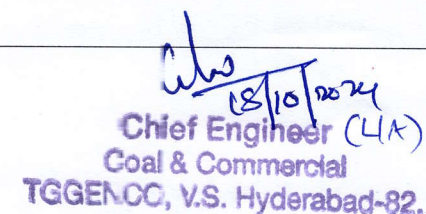 18/10/2024
Chief Engineer (LIA)
Coal & Commercial
TGGENCO, V.S. Hyderabad-82.